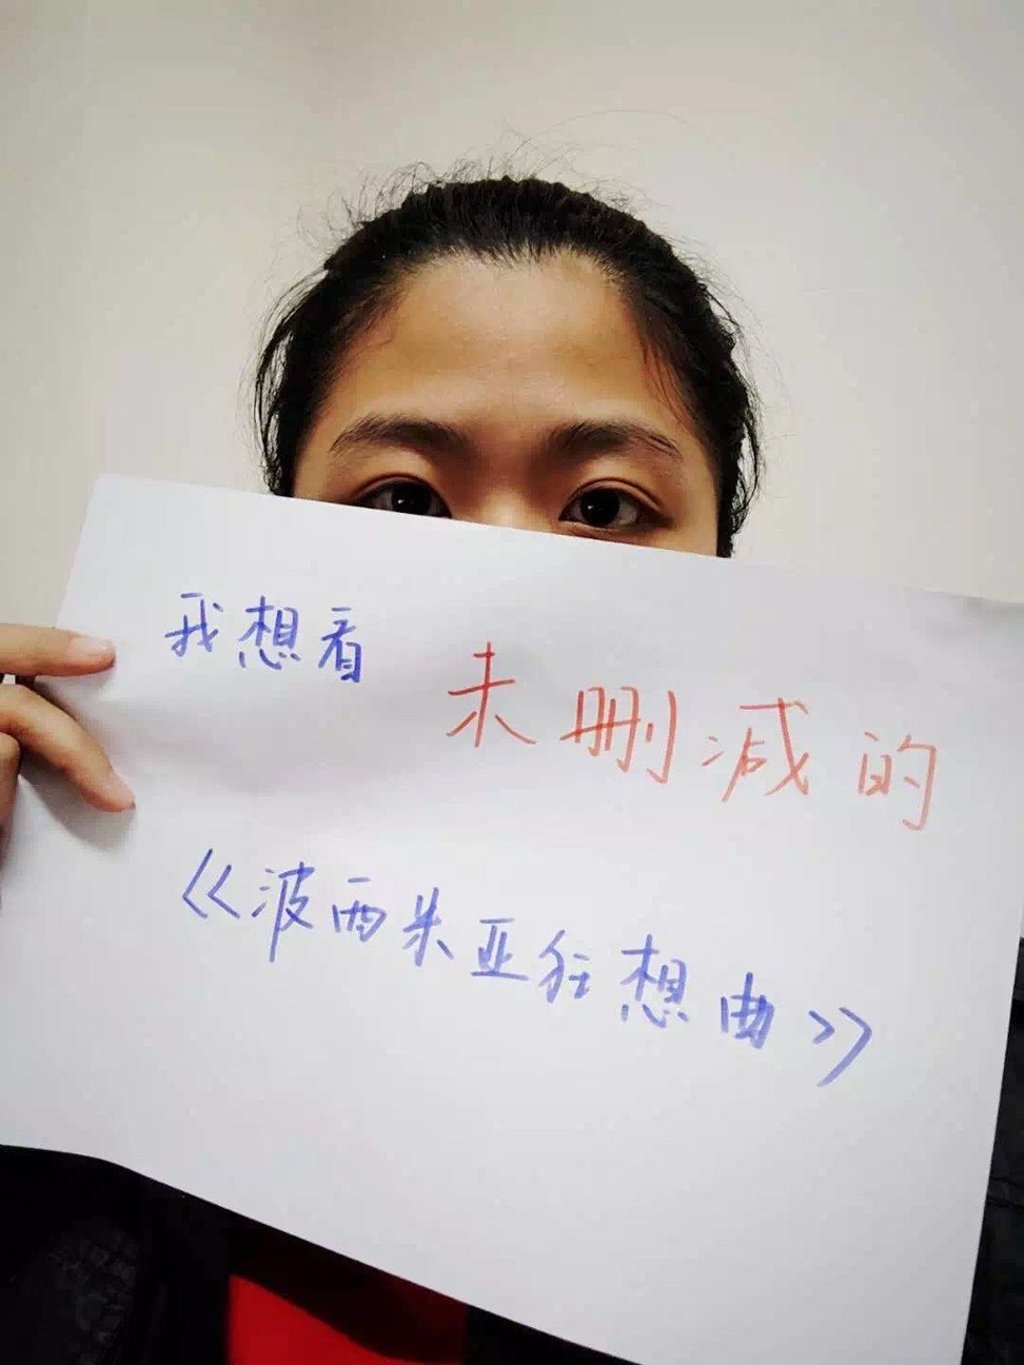 我想看 未删减的
《波西米亚狂想曲》